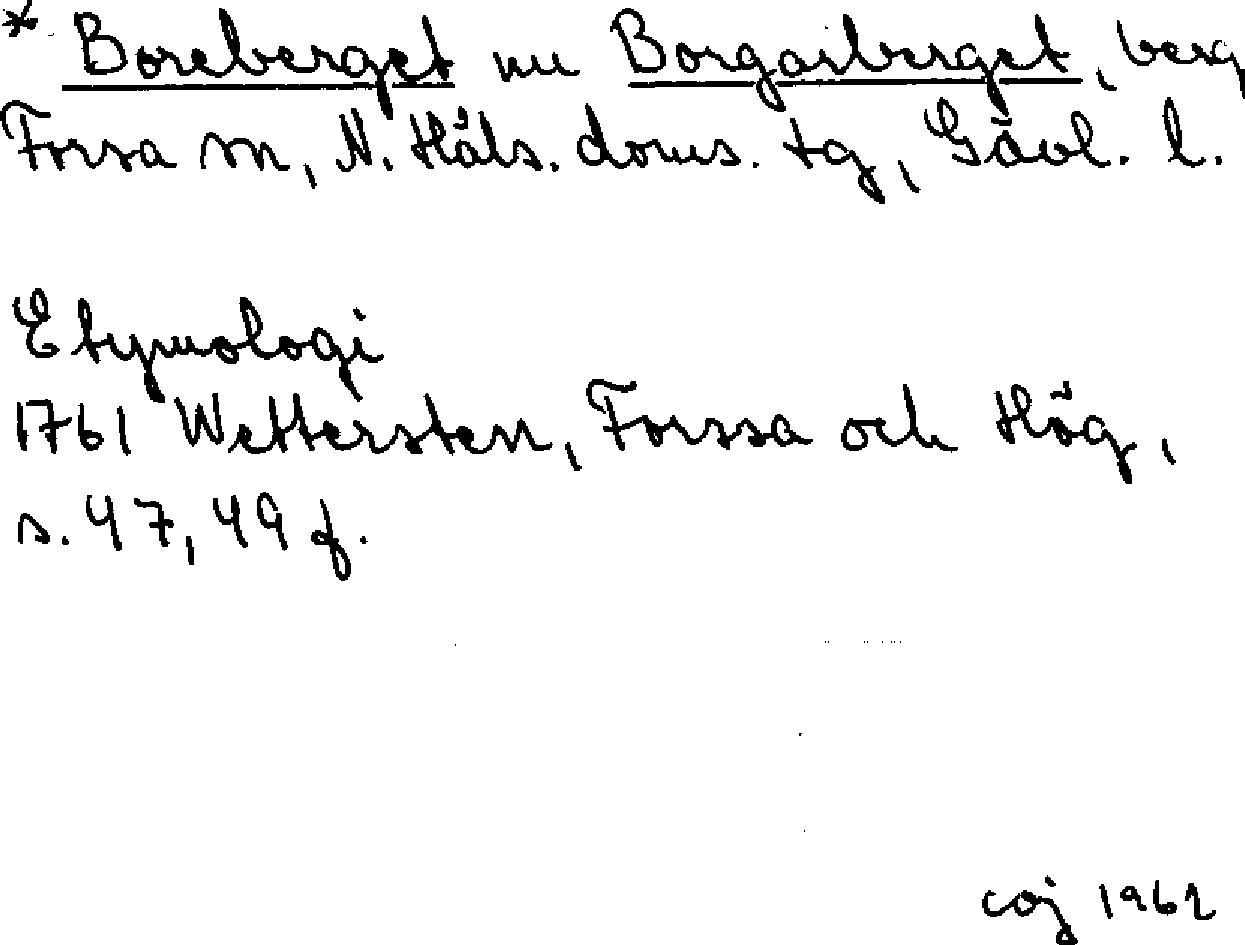 * Boreberget nu Borgarberget, berg
Forsa sn, N. Häls. doms. tg, Gävl. l.
Etymologi
1761 Wettersten, Forssa och Hög,
s. 47, 49 f.
coj 1962